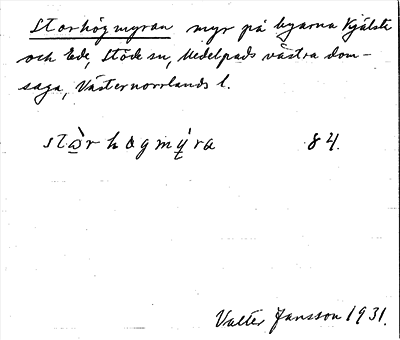 Storhögmyran myr på byarna Kjälste
och Ede, Stöde sn, Medelpads västra dom-
saga, Västernorrlands l.
stὼr högmý̠ra 84.
Valter Jansson 1931.